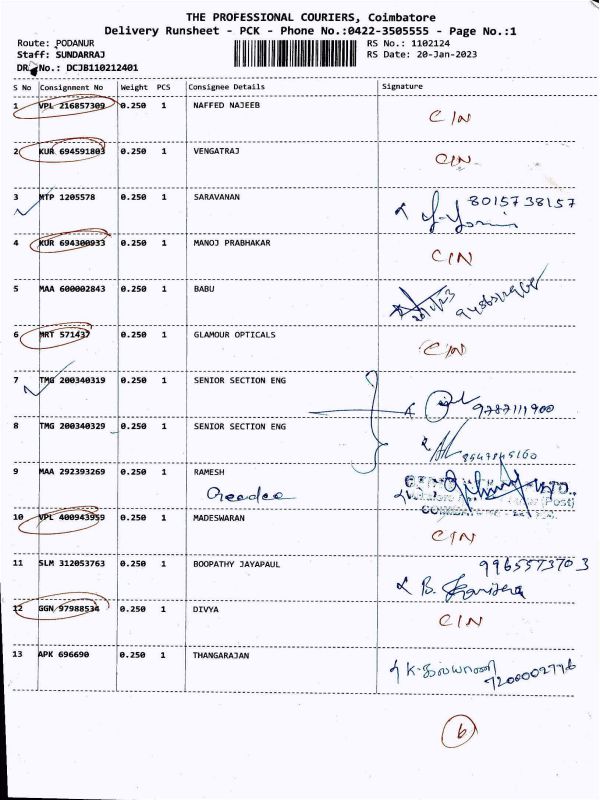 THE PROFESSIONAL COURIERS, Coimbatore
Delivery Runsheet - PCK - Phone No.:0422-3505555 - Page No.:1
Route: PODANUR RS No.: 1102124
Staff: SUNDARRAJ RS Date: 20-Jan-2023
DR No.: DCJB110212401
S No Consignment No Weight PCS Consignee Details Signature
1 VPL 216857309 0.250 1 NAFFED NAJEEB C/N
2 KUR 694591803 0.250 1 VENGATRAJ C/N
3 MTP 1205578 0.250 1 SARAVANAN 8015738157
4 KUR 694300933 0.250 1 MANOJ PRABHAKAR C/N
5 MAA 600002843 0.250 1 BABU
6 MRT 571437 0.250 1 GLAMOUR OPTICALS C/N
7 TMG 200340319 0.250 1 SENIOR SECTION ENG 9787111900
8 TMG 200340329 0.250 1 SENIOR SECTION ENG
9 MAA 292393269 0.250 1 RAMESH
10 VPL 400943959 0.250 1 MADESWARAN C/N
11 SLM 312053763 0.250 1 BOOPATHY JAYAPAUL 9965573703
12 GGN 97988534 0.250 1 DIVYA C/N
13 APK 696690 0.250 1 THANGARAJAN
7200002776
6